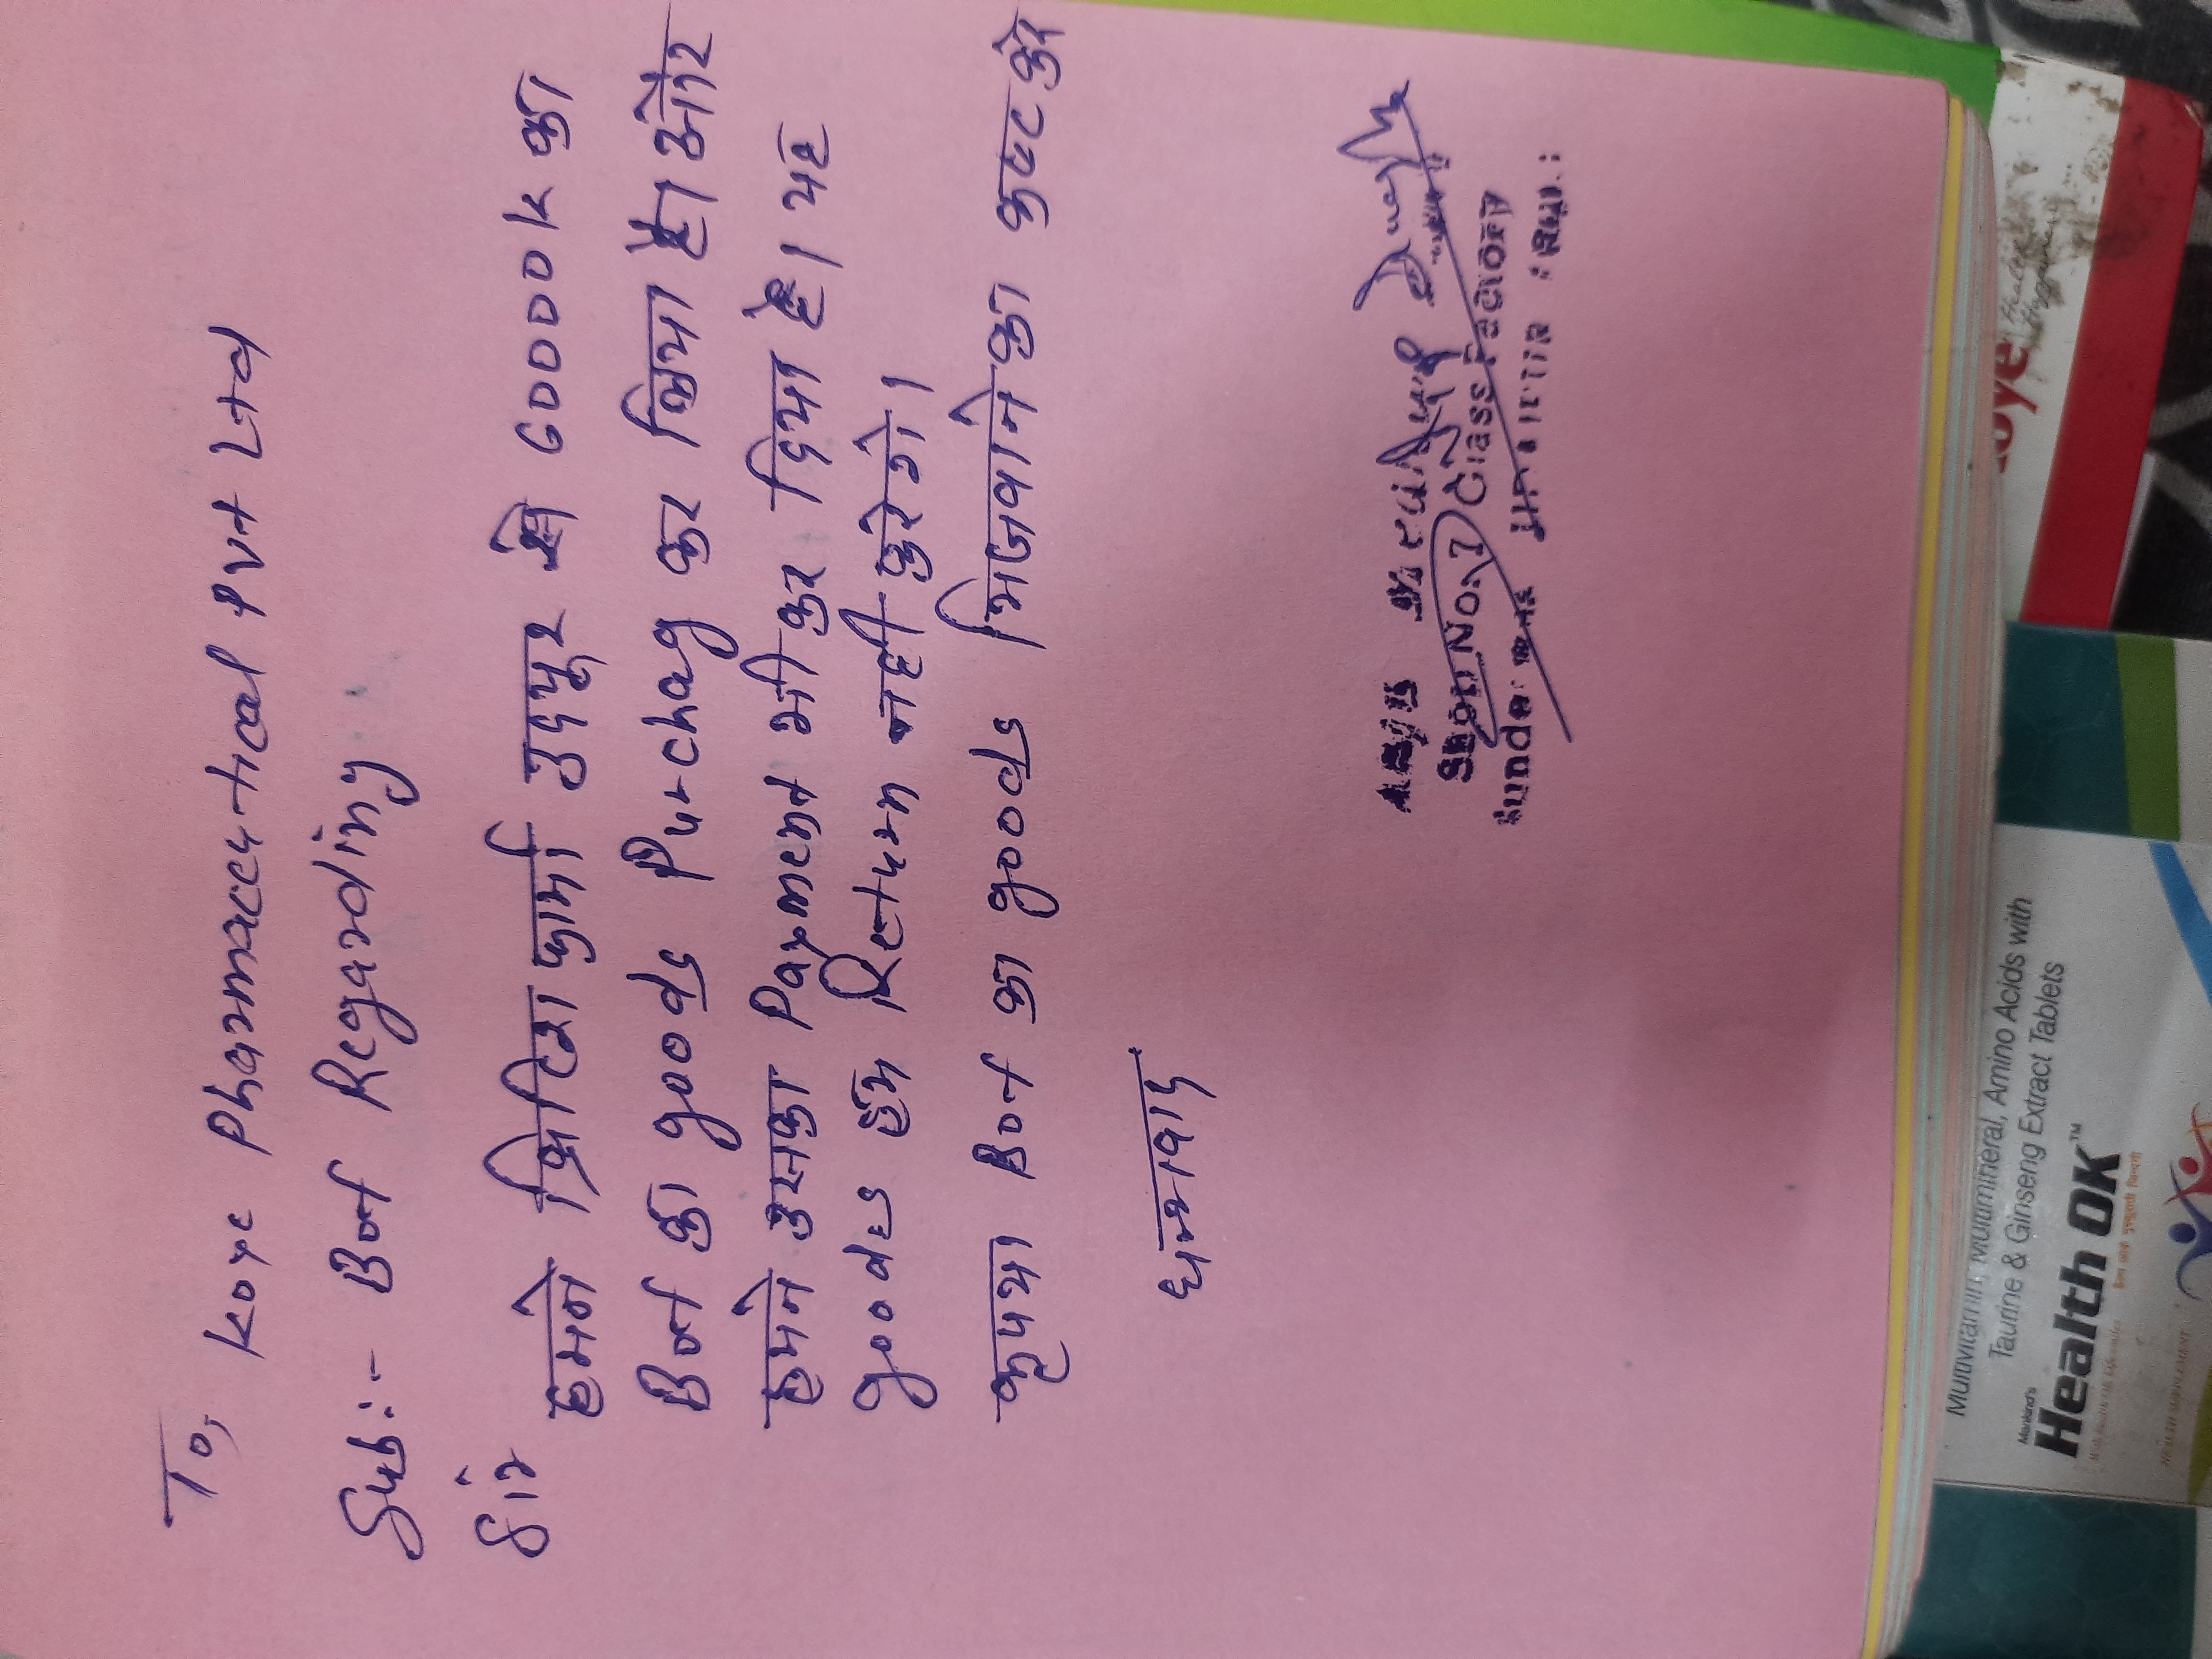 To,
Kore Pharmaceutical Pvt Ltd
Sub:- Bort Regarding
सर
हमने क्रिटिश फार्मा उदपूर से 60000K का
Bort का goods Purchag कर लिया है। और
हमने उसका Payment भी कर दिया है। यह
goods हम Return नही करेगे।
कृपया Bort का goods भिजवाने का कष्ट करे
धन्यवाद
Shop No. 7 Glass Factory
Multivitamin, Multimineral, Amino Acids with
Taurine & Ginseng Extract Tablets
Mankind's
Health OK™